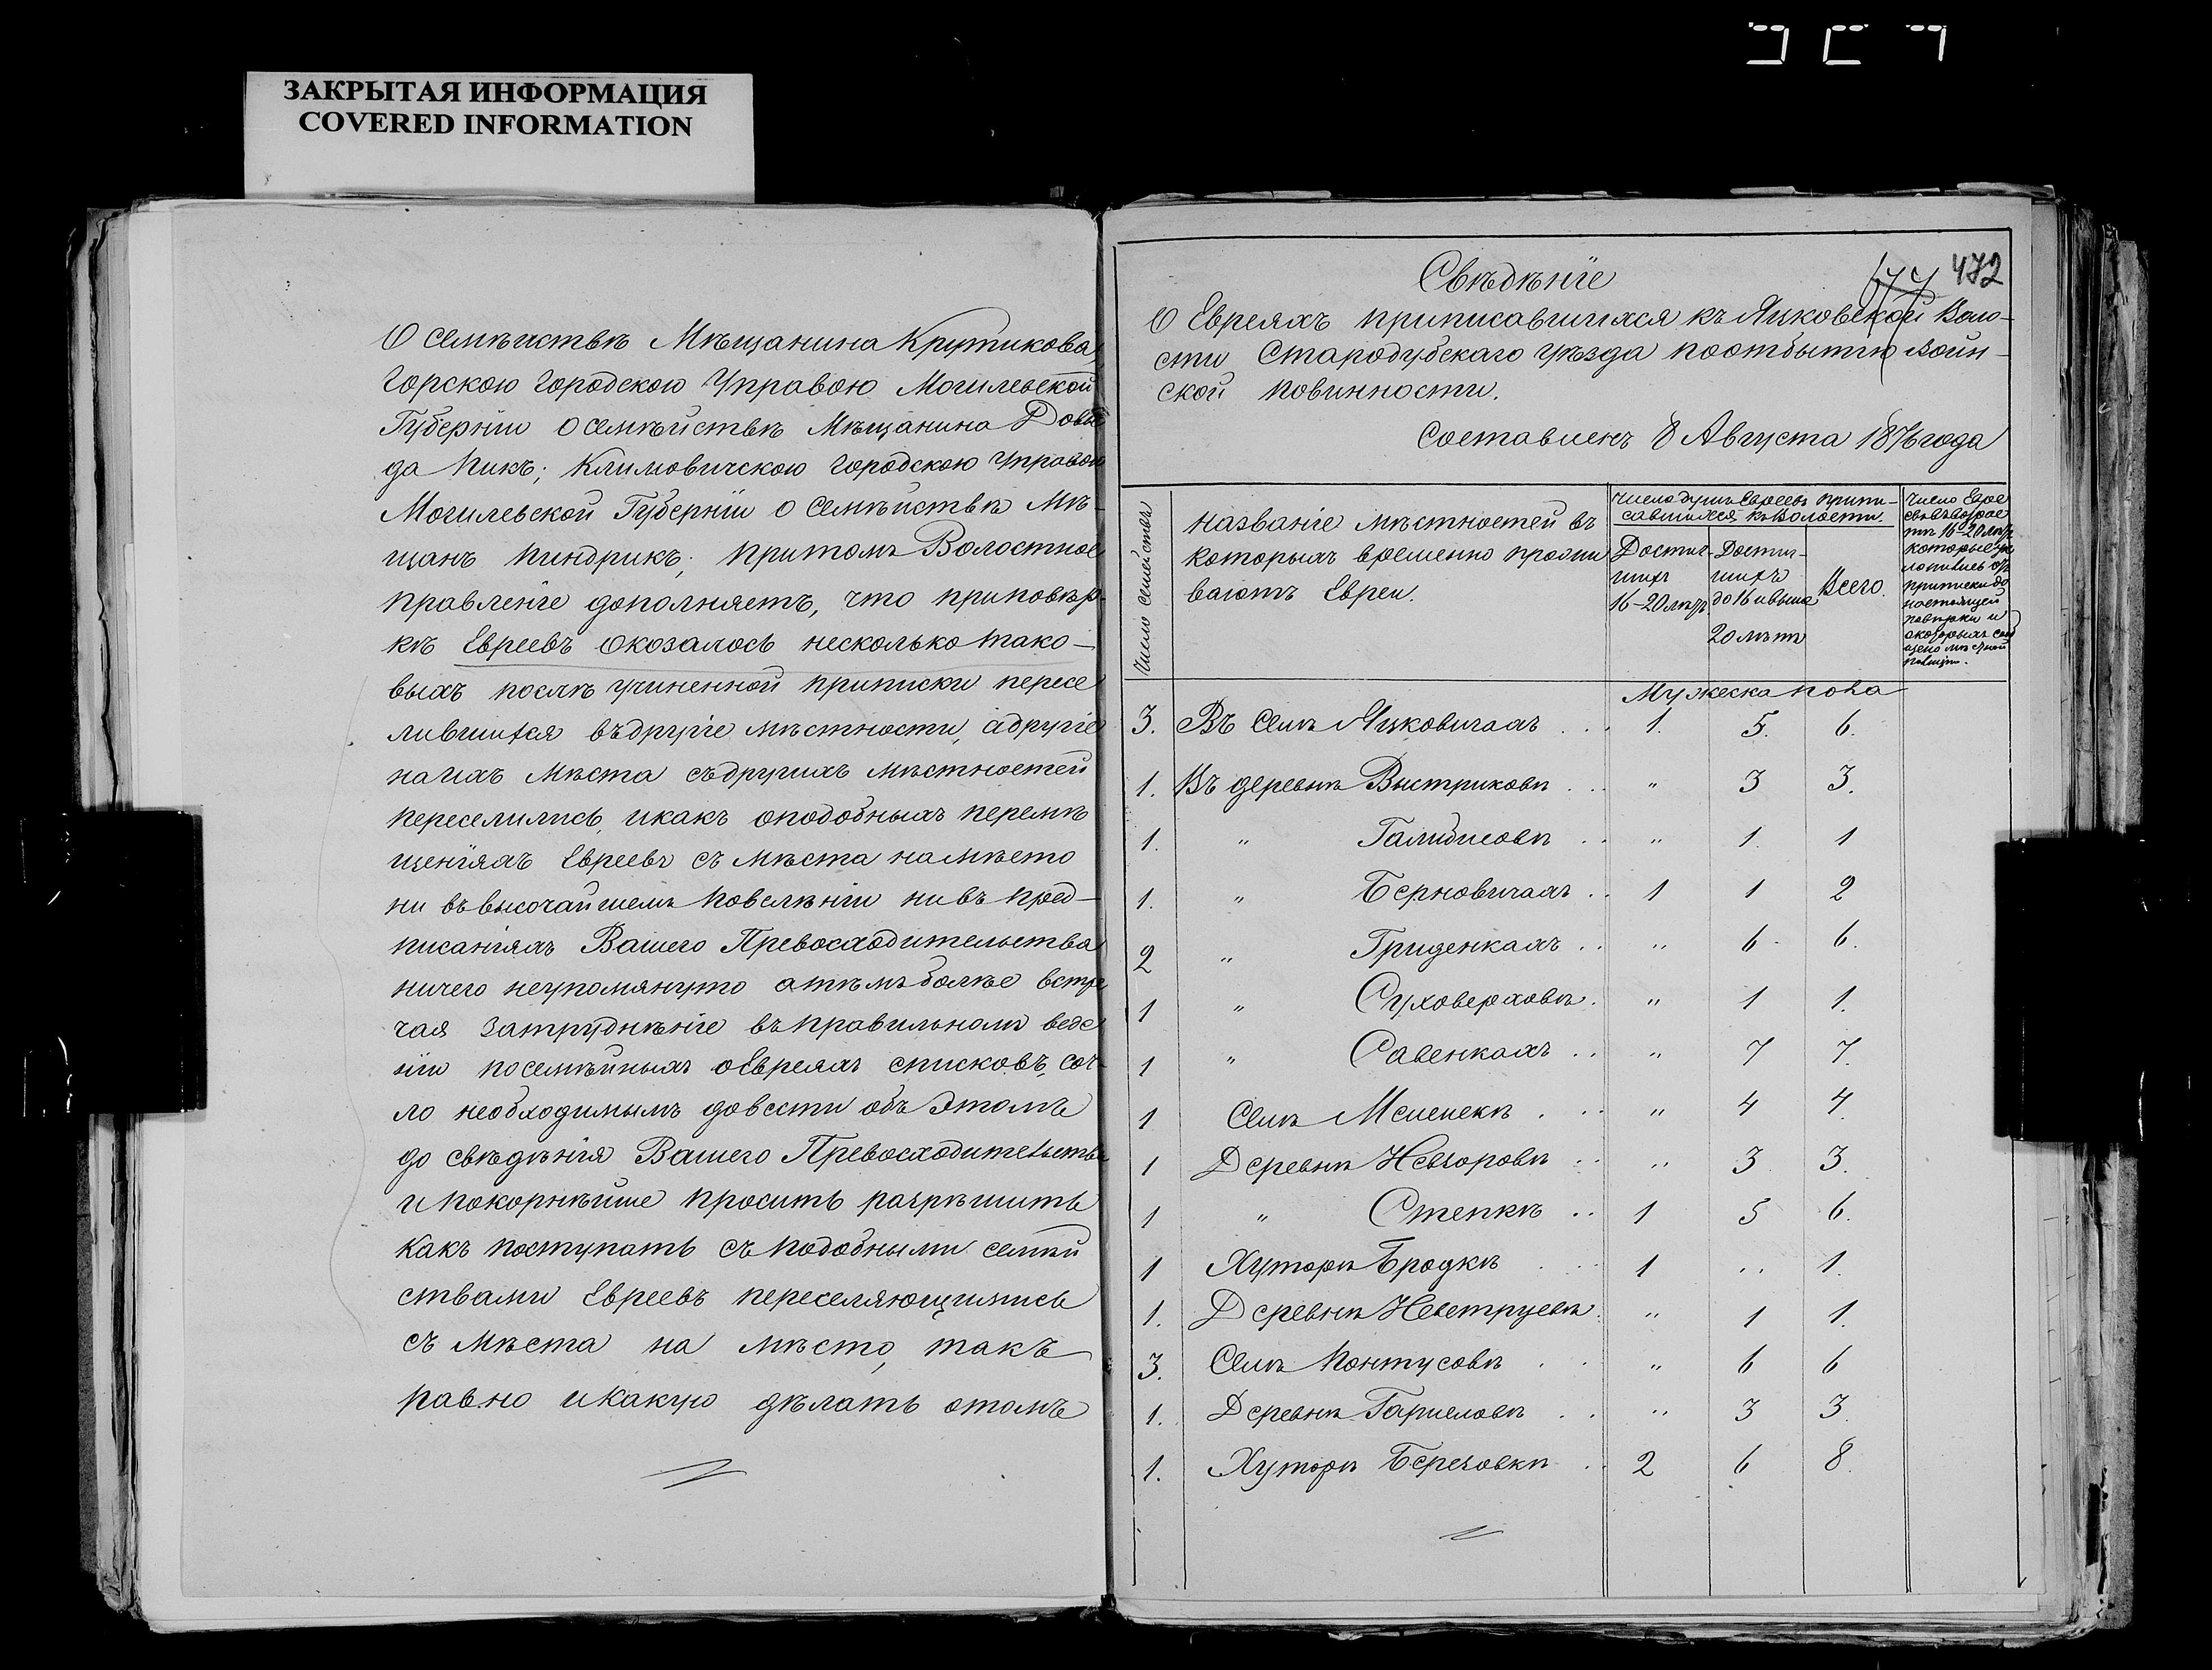 ЗАКРЫТАЯ ИНФОРМАЦИЯ
COVERED INFORMATION
О семѣйствѣ Мѣщанина Крутикова,
Горскою Городскою Управою Могилевской
Губерніи о семѣйствѣ Мѣщанина Довы
да Пикъ; Климовичскою Городскою Управою
Могилевской Губерніи о Семѣйствѣ Мѣ-
щанъ Пиндрикъ; притомъ Волостное
Правленіе дополняетъ, что приповѣр-
кѣ Евреевъ оказалось несколько тако-
выхъ послѣ учиненной приписки пересе
лившихся въ другіе мѣстности, а другіе
на ихъ мѣста съ другихъ мѣстностей
переселились, и какъ о подобныхъ перемѣ
щеніяхъ Евреевъ съ мѣста на мѣсто
ни въ высочайшемъ повелѣніи ни въ пред-
писаніяхъ Вашего Превосходительства
ничего неупомянуто а тѣмъ болѣе встрѣ
чая затрудненіе въ правильномъ веде
ніи посемѣйныхъ о Евреяхъ списковъ, соч-
ло необходимымъ довести объ этомъ
до свѣдѣнія Вашего Превосходительства
и покорнѣйше просить разрѣшить
какъ поступать съ подобными семѣй
ствами Евреевъ переселяющимись
съ мѣста на мѣсто, такъ
равно и какую дѣлать отомъ
472
Свѣдѣніе
О Евреяхъ приписавшихся къ Яцковской Воло-
сти Стародубскаго уѣзда по отбытію воин-
ской повинности.
Составленъ 8 Августа 1876 года
Число семействъ
Названіе мѣстностей въ
которыхъ временно прожи
ваютъ Евреи.
Число душъ Евреевъ припи-
савшихся къ Волости.
Достиг-
шихъ
16-20 лѣтъ
Достиг-
шихъ
до 16 и выше
20 лѣтъ
Всего.
Число Евре
евъ въ возрас
тѣ 16-20 лѣтъ
которые
приписки до
настоящей
повѣрки и
о которыхъ соо
щено мѣстной
полиціи.
Мужеска пола
3. Въ Селѣ Яцковичахъ . . . 1. 5. 6.
1. Въ деревнѣ Выстриковѣ . . . " 3 3.
1. " . . " 1. 1
1. " Берновичахъ . . 1 1 2
2 " Гриденкахъ . . " 6 6.
1 " Суховерховѣ . " 1 1.
1 " Савенкахъ . . " 7 7.
1 Селѣ . . . " 4 4.
1 Деревнѣ Невзоровѣ . . " 3 3.
1 " Степкѣ . . 1 5 6.
1 Хуторѣ Бродкѣ . . . 1 " 1.
1. Деревнѣ . " 1 1.
3. Селѣ Понтусовѣ . . " 6 6
1. Деревнѣ Гарцеловѣ . . " 3 3
1. Хуторѣ Березовкѣ . 2 6 8.